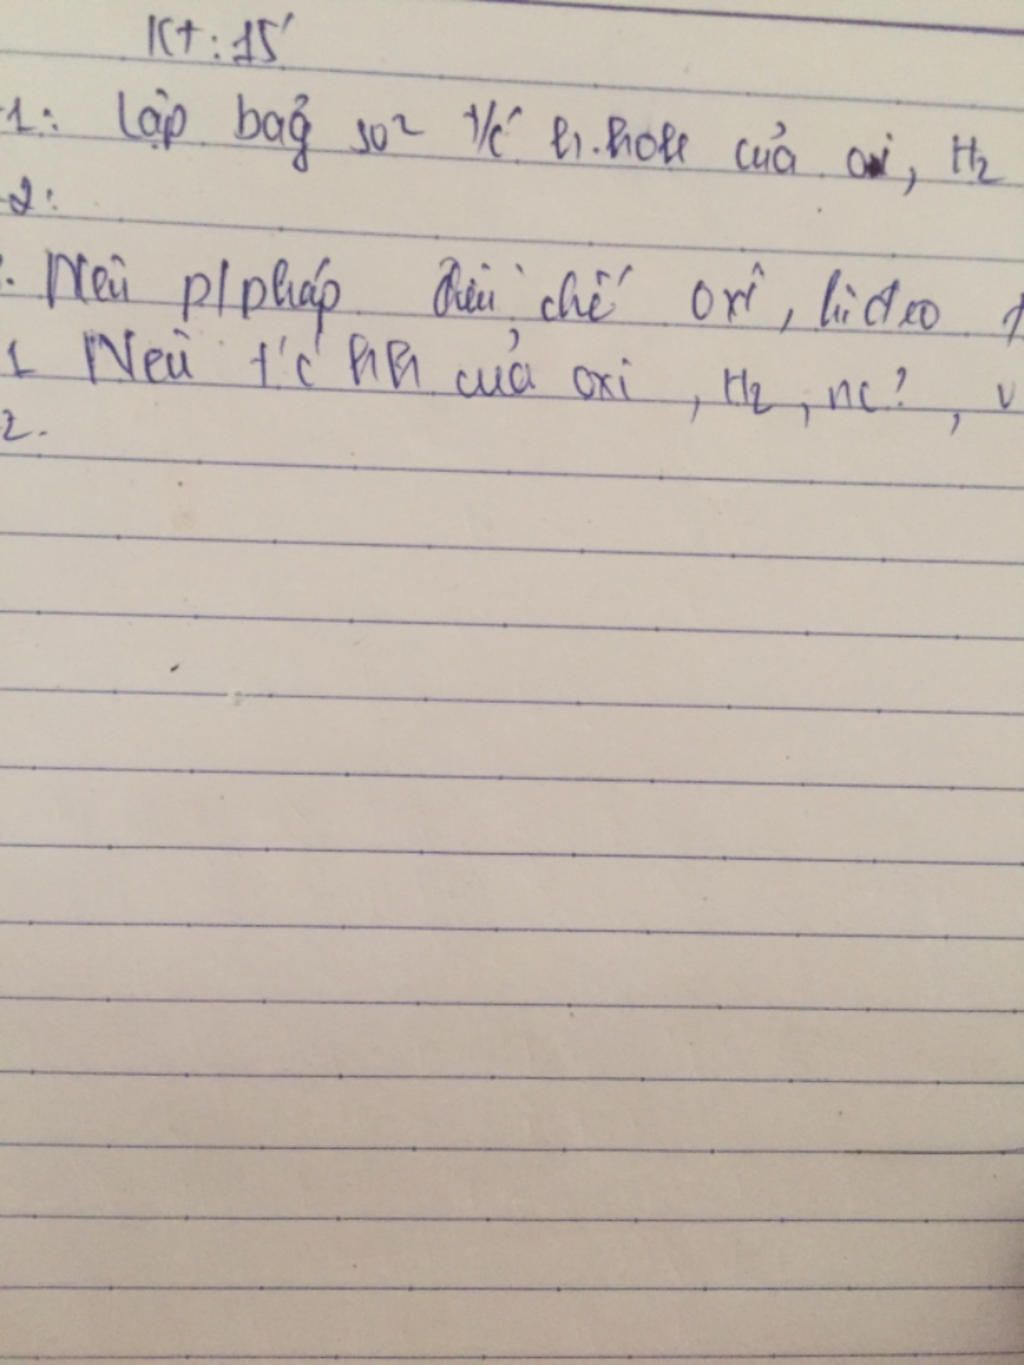 Kt: 15'
1: Lập bảg so² t/c h.hoá của oxi, H₂
2:
Nêu p/pháp điều chế oxi, hiđro
1 Nêu t/c hh của oxi, H₂, nc?,
2.